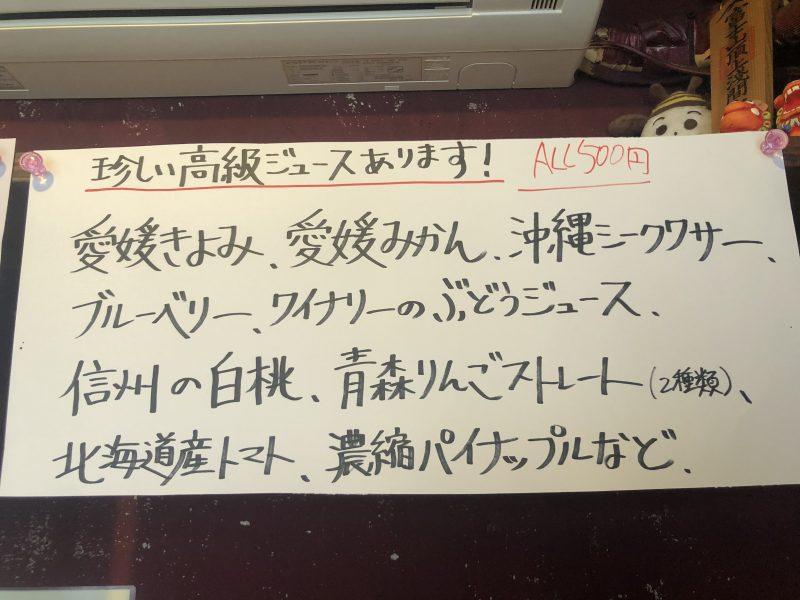 珍しい高級ジュースあります!
ALL500円
愛媛きよみ、愛媛みかん、沖縄シークワサー、
ブルーベリー、ワイナリーのぶどうジュース、
信州の白桃、青森りんごストレート(2種類)、
北海道産トマト、濃縮パイナップルなど、